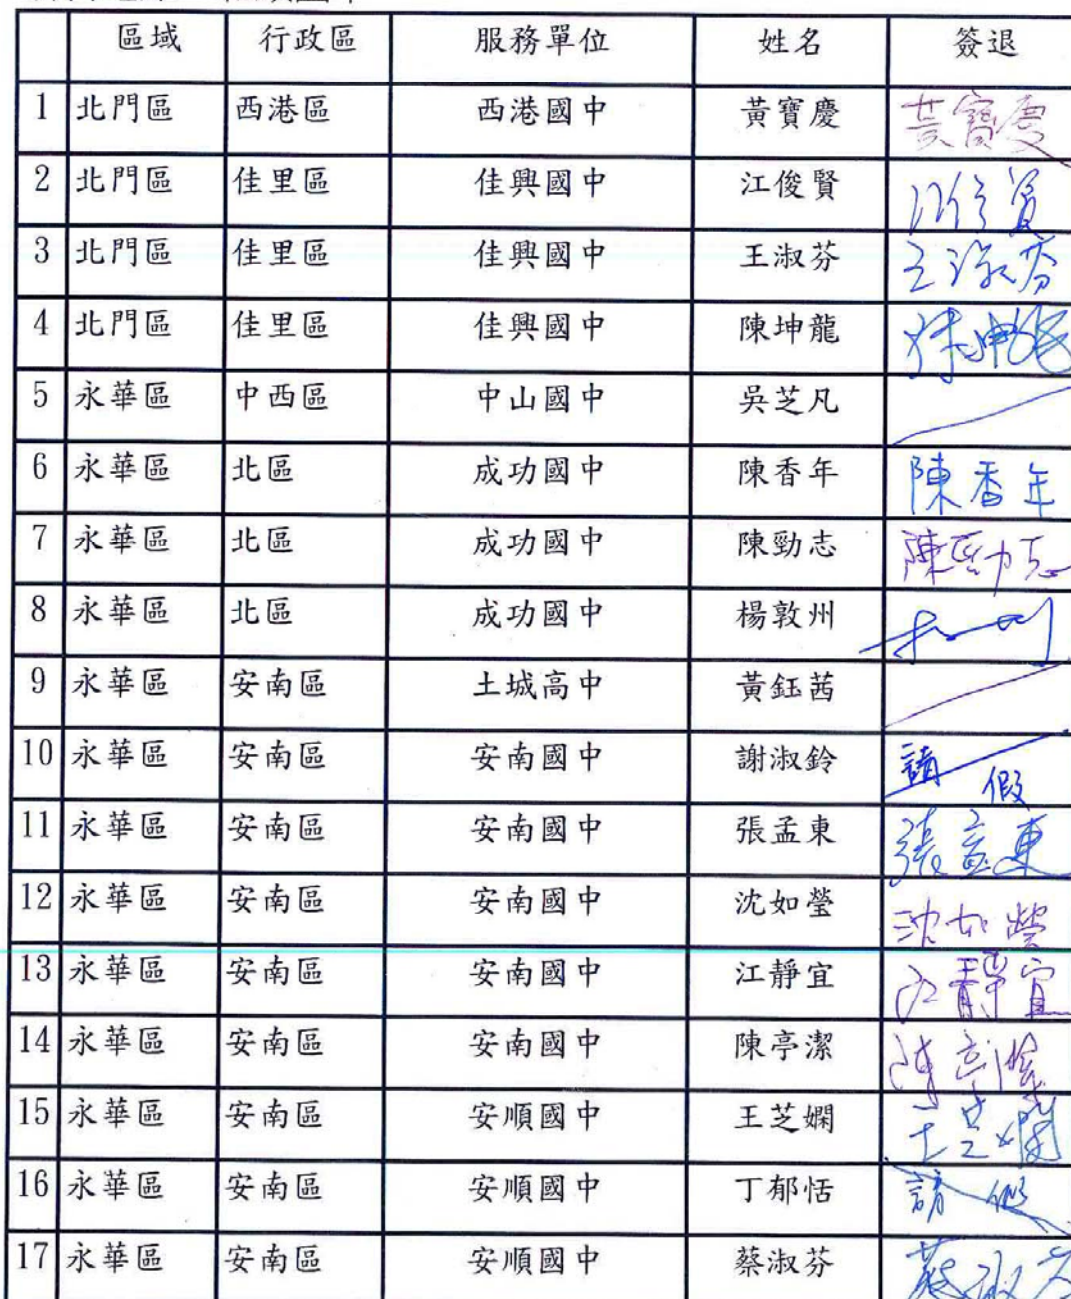 區域 行政區 服務單位 姓名 簽退
1 北門區 西港區 西港國中 黃寶慶 黃寶慶
2 北門區 佳里區 佳興國中 江俊賢 江俊賢
3 北門區 佳里區 佳興國中 王淑芬 王淑芬
4 北門區 佳里區 佳興國中 陳坤龍 陳坤龍
5 永華區 中西區 中山國中 吳芝凡
6 永華區 北區 成功國中 陳香年 陳香年
7 永華區 北區 成功國中 陳勁志 陳勁志
8 永華區 北區 成功國中 楊敦州
9 永華區 安南區 土城高中 黃鈺茜
10 永華區 安南區 安南國中 謝淑鈴 請假
11 永華區 安南區 安南國中 張孟東 張孟東
12 永華區 安南區 安南國中 沈如瑩 沈如瑩
13 永華區 安南區 安南國中 江靜宜 江靜宜
14 永華區 安南區 安南國中 陳亭潔 陳亭潔
15 永華區 安南區 安順國中 王芝嫻 王芝嫻
16 永華區 安南區 安順國中 丁郁恬 請假
17 永華區 安南區 安順國中 蔡淑芬 蔡淑芬